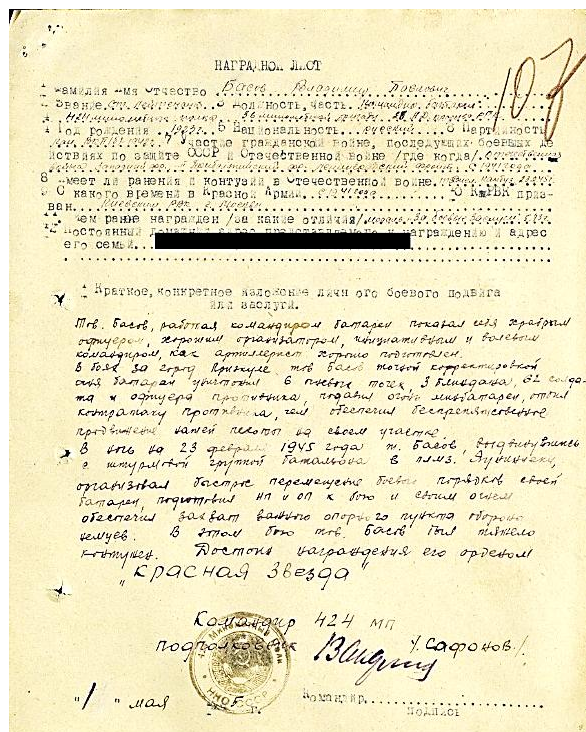 107
НАГРАДНОЙ ЛИСТ
1 Фамилия Имя Отчество Басов Владимир Павлович
2 Звание ст. лейтенант 3 Должность, часть Командир батареи
424 минометного полка
4 Год рождения 1923 г. 5 Национальность русский 6 Партийность
7 Участие гражданской войне, последующих боевых де
йствиях по защите СССР и Отечественной Войне /где когда/
8 Имеет ли ранения и контузии в Отечественной войне.
9 С какого времени в Красной Армии 10 Каким РВК приз-
ван. Киевским РВК г. Москвы
11 Чем ранее награжден /за какие отличия/ медаль "За боевые заслуги"
12 Постоянный домашний адрес представляемого к награждению и адрес
его семьи.
1 Краткое, конкретное изложение личного боевого подвига
или заслуги.
Тов. Басов, работая командиром батареи показал себя храбрым
офицером, хорошим организатором, инициативным и волевым
командиром, как артиллерист хорошо подготовлен.
В боях за город тов Басов точной корректировкой
огня батареи уничтожил 6 огневых точек, 3 блиндажа, 62 солда-
та и офицера противника, подавил огонь минбатареи, отбил
контратаку противника, чем обеспечил беспрепятственное
продвижение нашей пехоты на своем участке.
В ночь на 23 февраля 1945 года т. Басов, выдвинувшись
с штурмовой группой батальона в
организовал быстрое перемещение боевых порядков своей
батареи, подготовил НП и ОП к бою и своим огнем
обеспечил захват важного опорного пункта обороны
немцев. В этом бою тов. Басов был тяжело
контужен. Достоин награждения его орденом
"КРАСНАЯ ЗВЕЗДА"
Командир 424 МП
подполковник /Сафонов/
"1" мая 5 г.
Командир
подпись